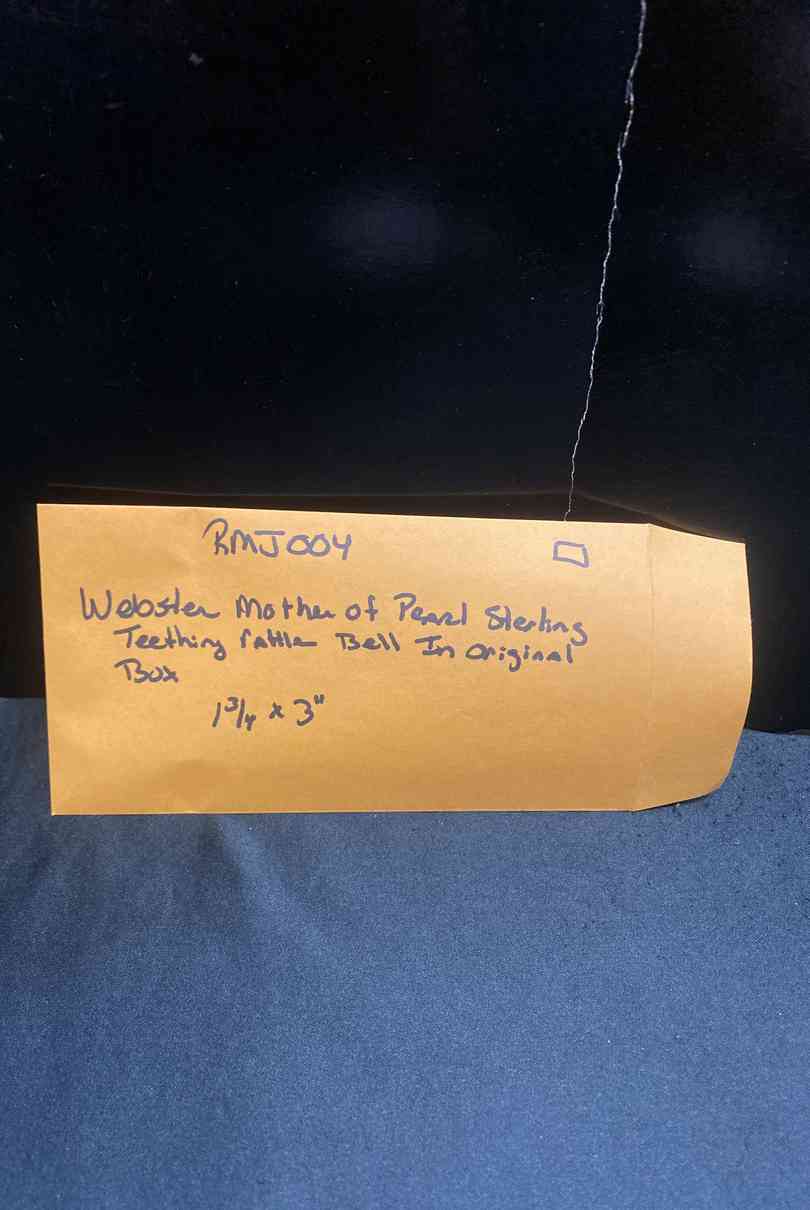 RMJ004
Webster Mother of Pearl Sterling
Teething rattle Bell In original
Box
1 3/4 x 3"